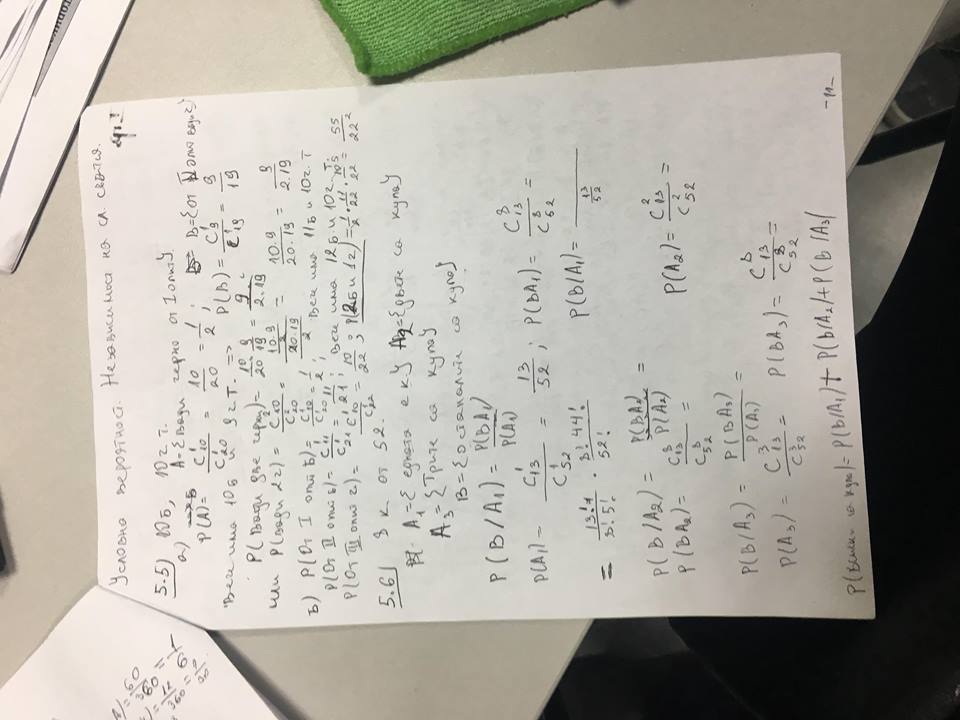 Условна вероятност. Независимост на сл. събития.
5.5) 10б, 10ч т.
а) A={вади черно от I опит}
P(A)= C¹₁₀/C¹₂₀ = 10/20 = 1/2 ; B={от II опит вади ч}
Вече има 10б и 9ч.т. => P(B)= C¹₉/C¹₁₉ = 9/19
P(вади две черни)= 10/20 · 9/19 = 9/2.19
или P(вади 2ч)= C²₁₀/C²₂₀ = (10.9/2)/(20.19/2) = 10.9/20.19 = 9/2.19
б) P(От I опит б)= C¹₁₀/C¹₂₀ = 1/2 ; Вече има 11б и 10ч. т
P(От II опит б)= C¹₁₁/C¹₂₁ = 11/21 ; Вече има 12б и 10ч. т.
P(От III опит ч)= C¹₁₀/C¹₂₂ = 10/22 ; P(2б и 1ч)= 1/2 · 11/22 · 10/22 = 55/22²
5.6) 8 к. от 52.
A₁={едната е к.} A₂={двете са купа}
A₃={Трите са купа}
B={останалите са купа}
P(B/A₁)= P(BA₁)/P(A₁)
P(A₁)= C¹₁₃/C¹₅₂ = 13/52 ; P(BA₁)= C⁸₁₃/C⁸₅₂ =
= 13!/8!5! · 8!44!/52! P(B/A₁)= /13/52
P(B/A₂)= P(BA₂)/P(A₂) =
P(BA₂)= C⁸₁₃/C⁸₅₂ = P(A₂)= C²₁₃/C²₅₂ =
P(B/A₃)= P(BA₃)/P(A₃) =
P(A₃)= C³₁₃/C³₅₂ = P(BA₃)= C⁸₁₃/C⁸₅₂ =
P(всички са купа)= P(B/A₁)+P(B/A₂)+P(B/A₃)
-11-